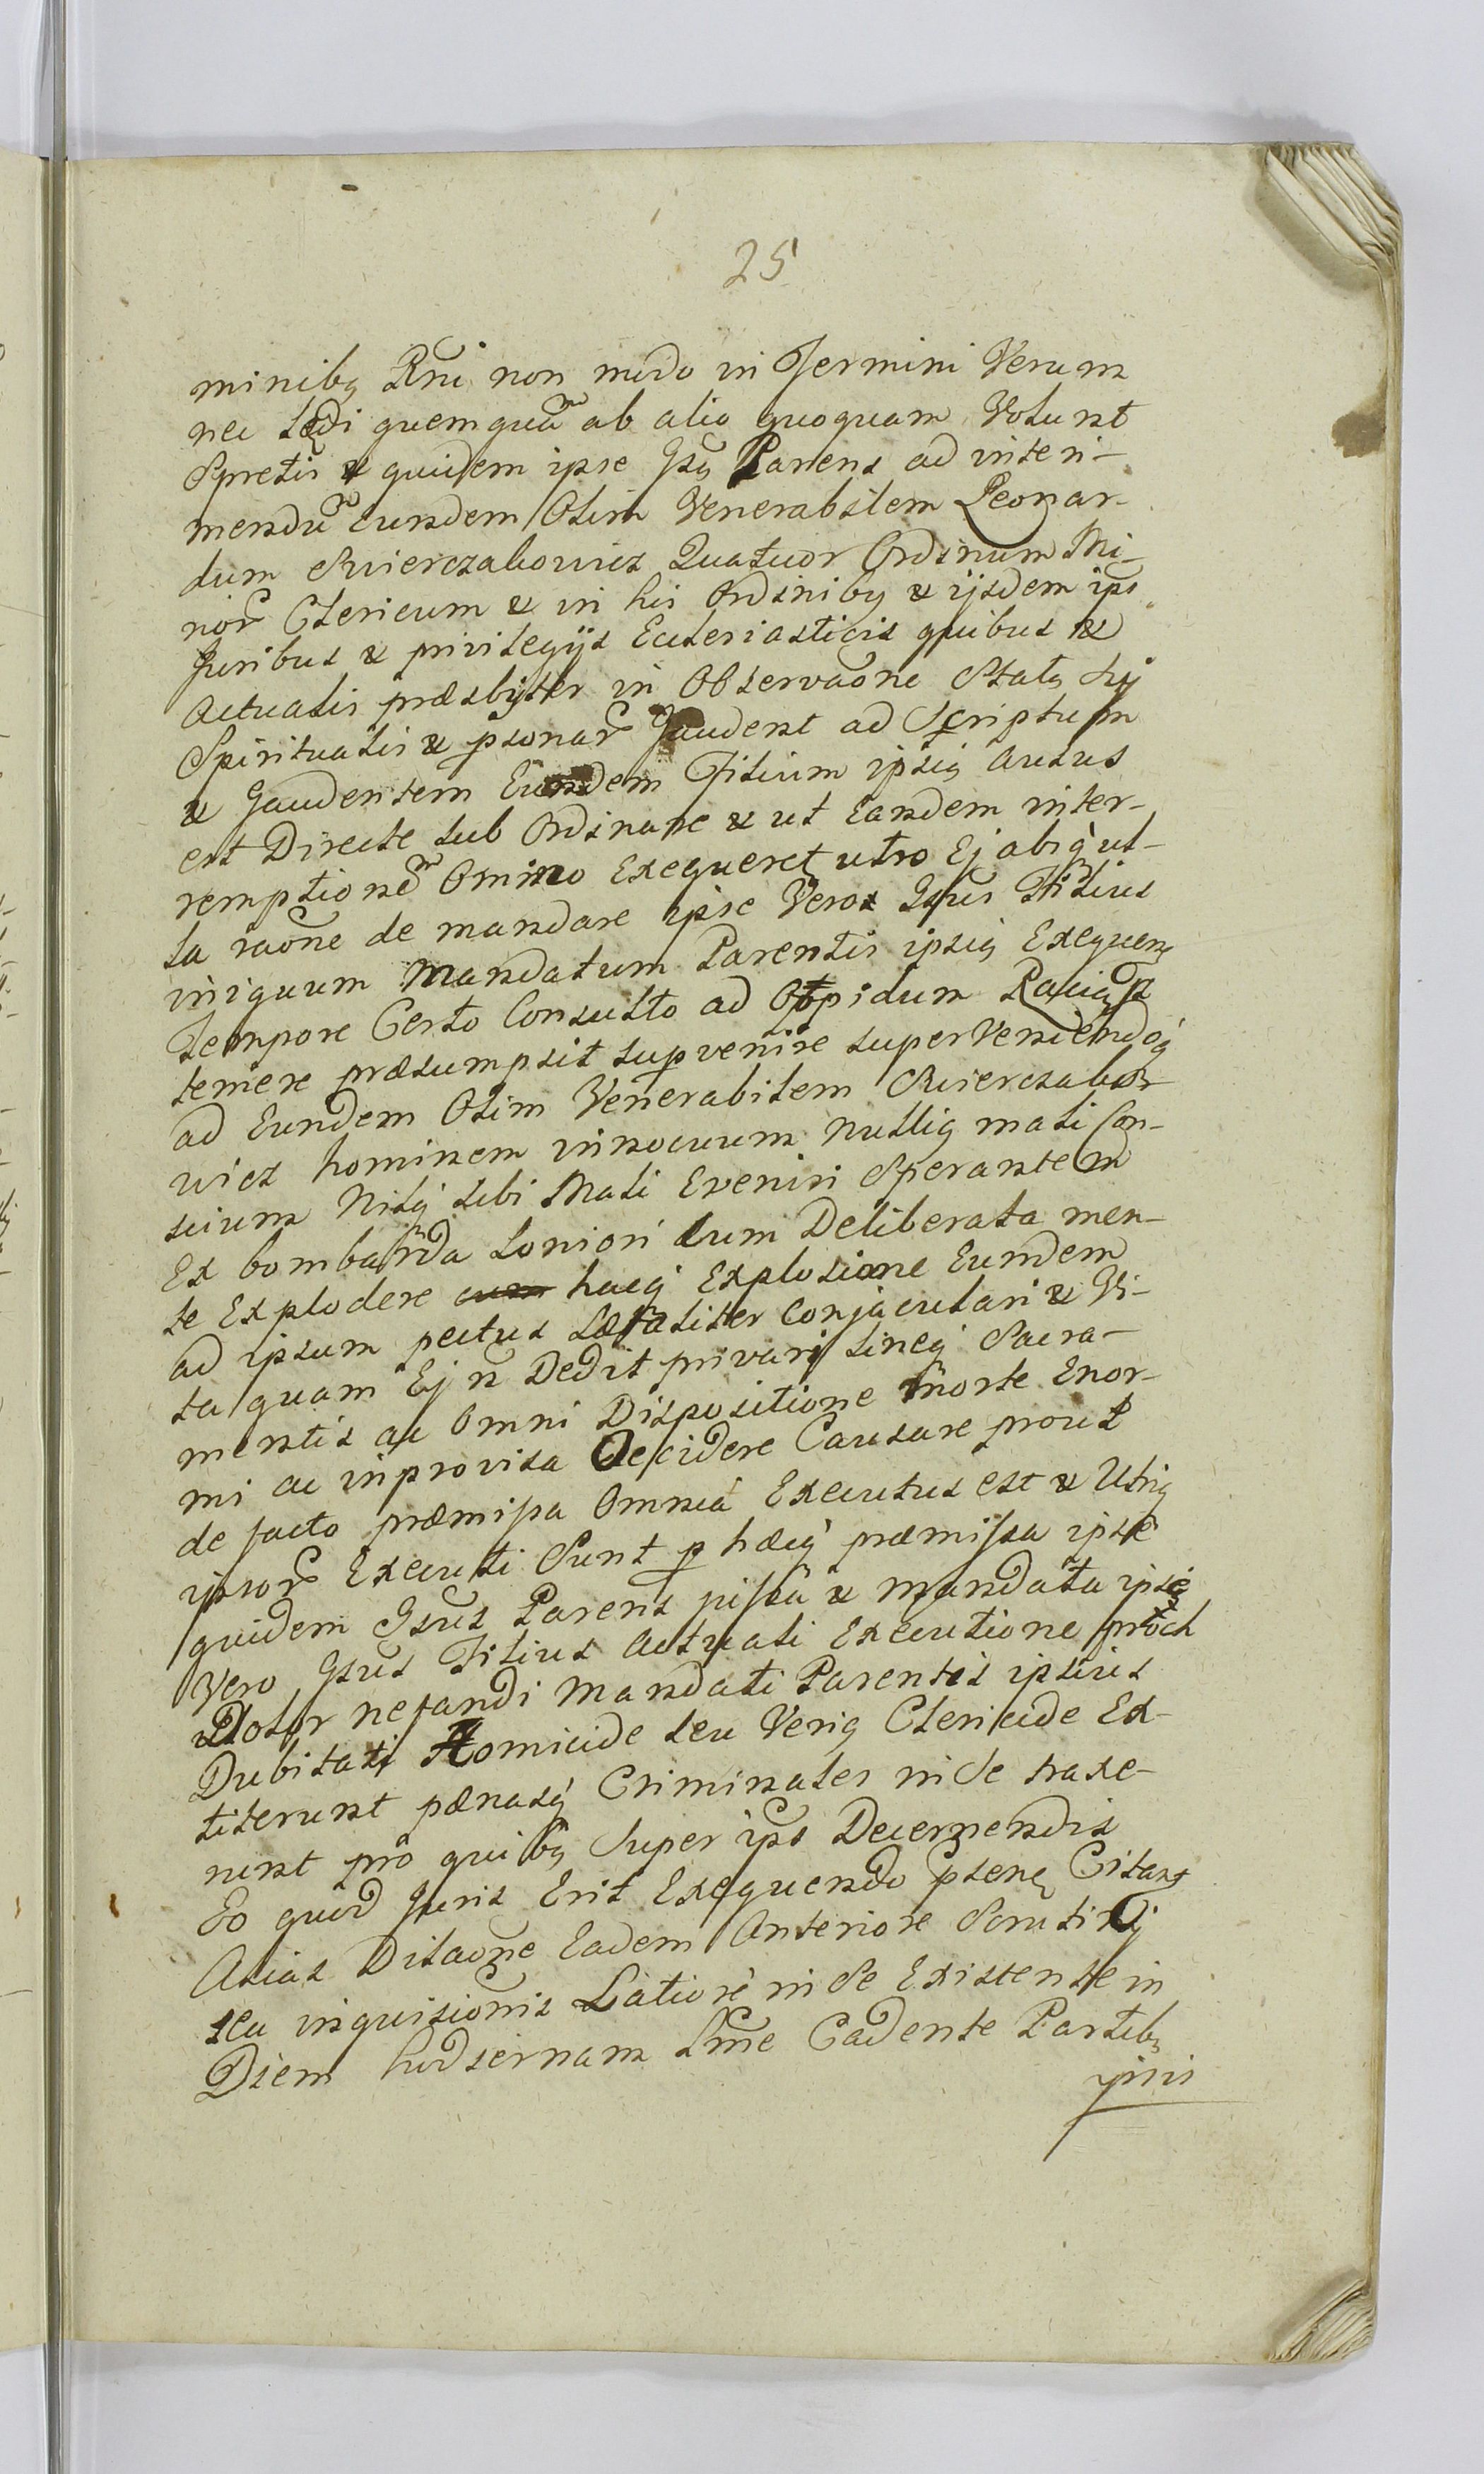 25
minibq Rni non modo in Termini Verum
nec lædi quemquam ab alio quoquam Volunt
Spretis & quidem ipse Gsq Parens ad interi-
mendum Eundem Olim Venerabilem Leonar-
dum Swierczakowicz Quatuor Ordinum Mi-
nor Clericum & in his Ordinibq & ijsdem ips
Juribus & privilegijs Ecclesiasticis quibus &
Actualis præsbyter in Observaone Statq
Spiritualis & psonar Gaudent ad Scriptum
& Gaudentem Eundem Filium ipsiq Ausus
est Directe sub Ordinare & ut Eandem inter-
remptionem Omnino Exequeret ultro Ej absq ul-
la raone de mandare ipse Vero Gsus Filius
iniquum Mandatum Parentis ipsiq Exequens
Tempore Certo Consulto ad Oppidum
temere præsumpsit supvenire superveniendoq
ad Eundem Olim Venerabilem Swierczako-
wicz hominem innocuum nulliq mali Con-
scium Nilq sibi Mali Eveniri Sperantem
Ex bombarda Loniori cum Deliberata men-
te Explodere cum hacq Explosione Eundem
ad ipsum pectus Lætaliter Conjaculari & Vi-
ta quam Ej n Dedit privari sineq Sacra-
mentis ac Omni Dispositione morte Enor-
mi ac inprovisa Decidere Causare prout
de facto præmissa Omnia Executus est & Utriq
ipsor Executi Sunt p hæcq præmissa ipse
quidem Gsus Parens jussu & Mandata ipse
Vero Gsus Filius Actuali Executione proch
Dolor nefandi Mandati Parentis ipsius
Dubitati Homicidæ seu Veriq Clericidæ Ex-
titerunt pænasq Criminales in Se traxe-
runt pro quibq Super ips Decernendis
Eo quod Juris Erit Exequendo psenq Citant
Alias Dilaone Eadem Anteriore Scrutinij
seu inquisionis Latiore in Se Existente in
Diem hodiernam Lme Cadente Partibq
ipsis